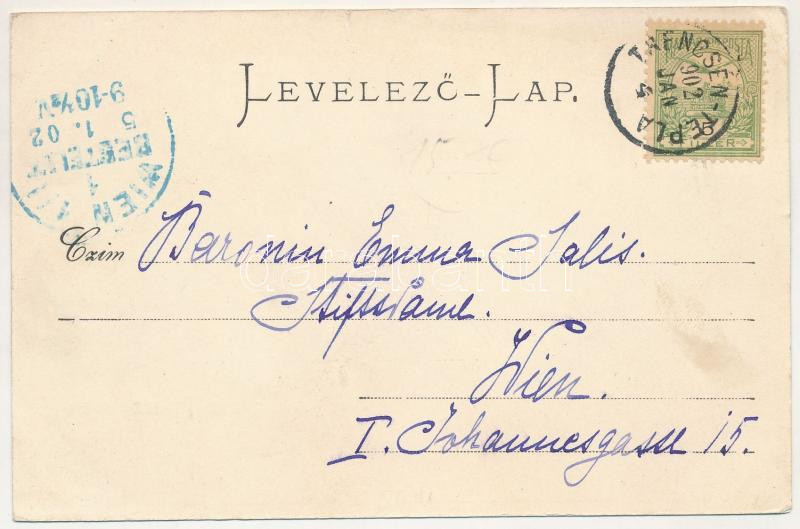 LEVELEZŐ-LAP.
TRENCSÉN-TEPLA
902
JAN
4
WIEN
1
BESTELLT
5 1. 02
9-10½V
Czim Baronin Emma Salis.
Stiftsdame.
Wien.
I. Johannesgasse 15.
darabanth